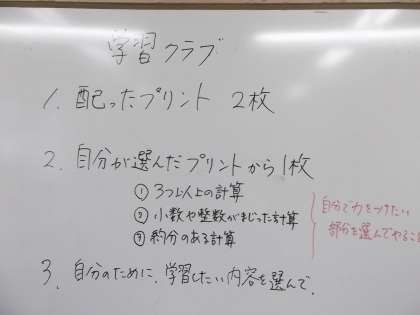 学習クラブ
1. 配ったプリント 2枚
2. 自分が選んだプリントから1枚
① 3つ以上の計算
② 小数や整数がまじった計算
③ 約分のある計算
自分で力をつけたい
部分を選んでやること
3. 自分のために、学習したい内容を選んで。